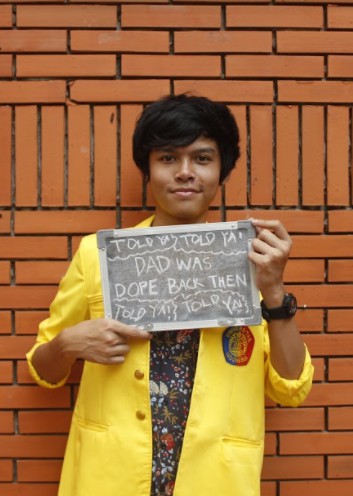 TOLD YA', TOLD YA'
DAD WAS
DOPE BACK THEN
TOLD YA'; TOLD YA';